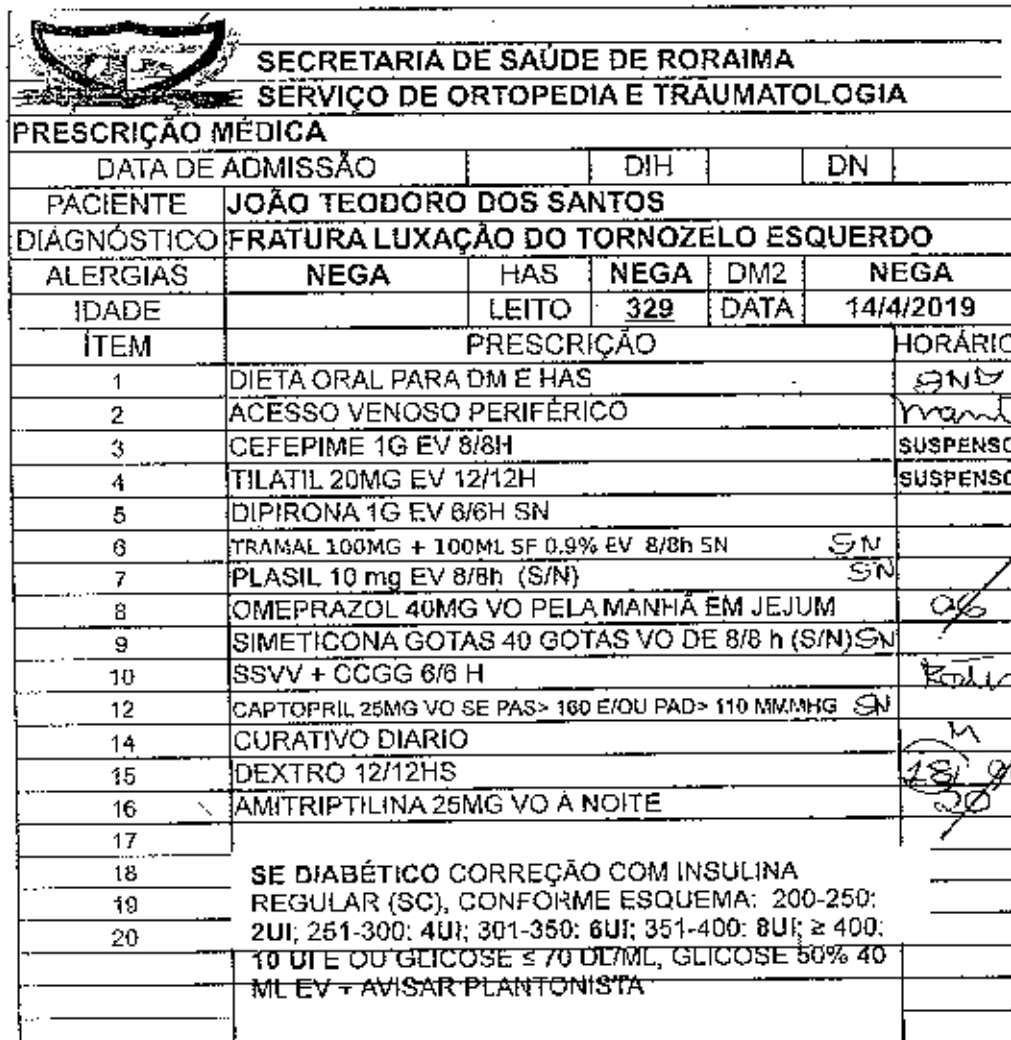 SECRETARIA DE SAÚDE DE RORAIMA
SERVIÇO DE ORTOPEDIA E TRAUMATOLOGIA
PRESCRIÇÃO MÉDICA
DATA DE ADMISSÃO DIH DN
PACIENTE JOÃO TEODORO DOS SANTOS
DIAGNÓSTICO FRATURA LUXAÇÃO DO TORNOZELO ESQUERDO
ALERGIAS NEGA HAS NEGA DM2 NEGA
IDADE LEITO 329 DATA 14/4/2019
ITEM PRESCRIÇÃO HORÁRIO
1 DIETA ORAL PARA DM E HAS SND
2 ACESSO VENOSO PERIFÉRICO
3 CEFEPIME 1G EV 8/8H SUSPENSO
4 TILATIL 20MG EV 12/12H SUSPENSO
5 DIPIRONA 1G EV 6/6H SN
6 TRAMAL 100MG + 100ML SF 0.9% EV 8/8h SN SN
7 PLASIL 10 mg EV 8/8h (S/N) SN
8 OMEPRAZOL 40MG VO PELA MANHÃ EM JEJUM 06
9 SIMETICONA GOTAS 40 GOTAS VO DE 8/8 h (S/N) SN
10 SSVV + CCGG 6/6 H
12 CAPTOPRIL 25MG VO SE PAS> 160 E/OU PAD> 110 MMMHG SN
14 CURATIVO DIARIO M
15 DEXTRO 12/12HS 18
16 AMITRIPTILINA 25MG VO À NOITE 20
17
18 SE DIABÉTICO CORREÇÃO COM INSULINA
19 REGULAR (SC), CONFORME ESQUEMA: 200-250:
20 2UI; 251-300: 4UI; 301-350: 6UI; 351-400: 8UI; ≥ 400:
10 UI E OU GLICOSE ≤ 70 DL/ML, GLICOSE 50% 40
ML EV + AVISAR PLANTONISTA